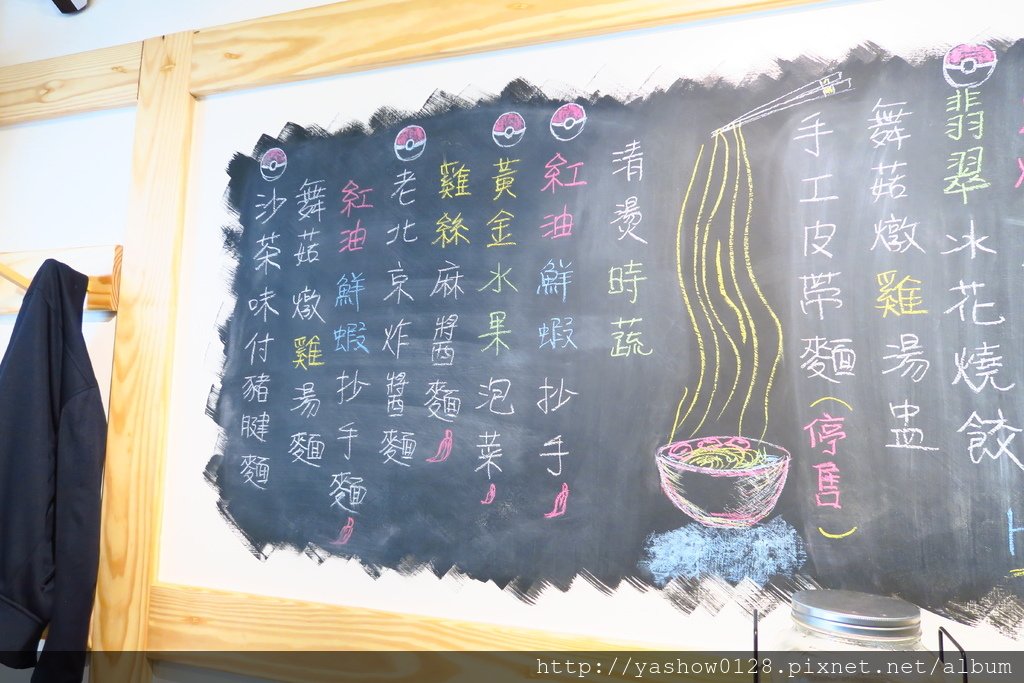 翡翠冰花燒餃
舞菇燉雞湯盅
手工皮帶麵(停售)
清燙時蔬
紅油鮮蝦抄手
黃金水果泡菜
雞絲麻醬麵
老北京炸醬麵
紅油鮮蝦抄手麵
舞菇燉雞湯麵
沙茶味付豬腱麵
http://yashow0128.pixnet.net/album